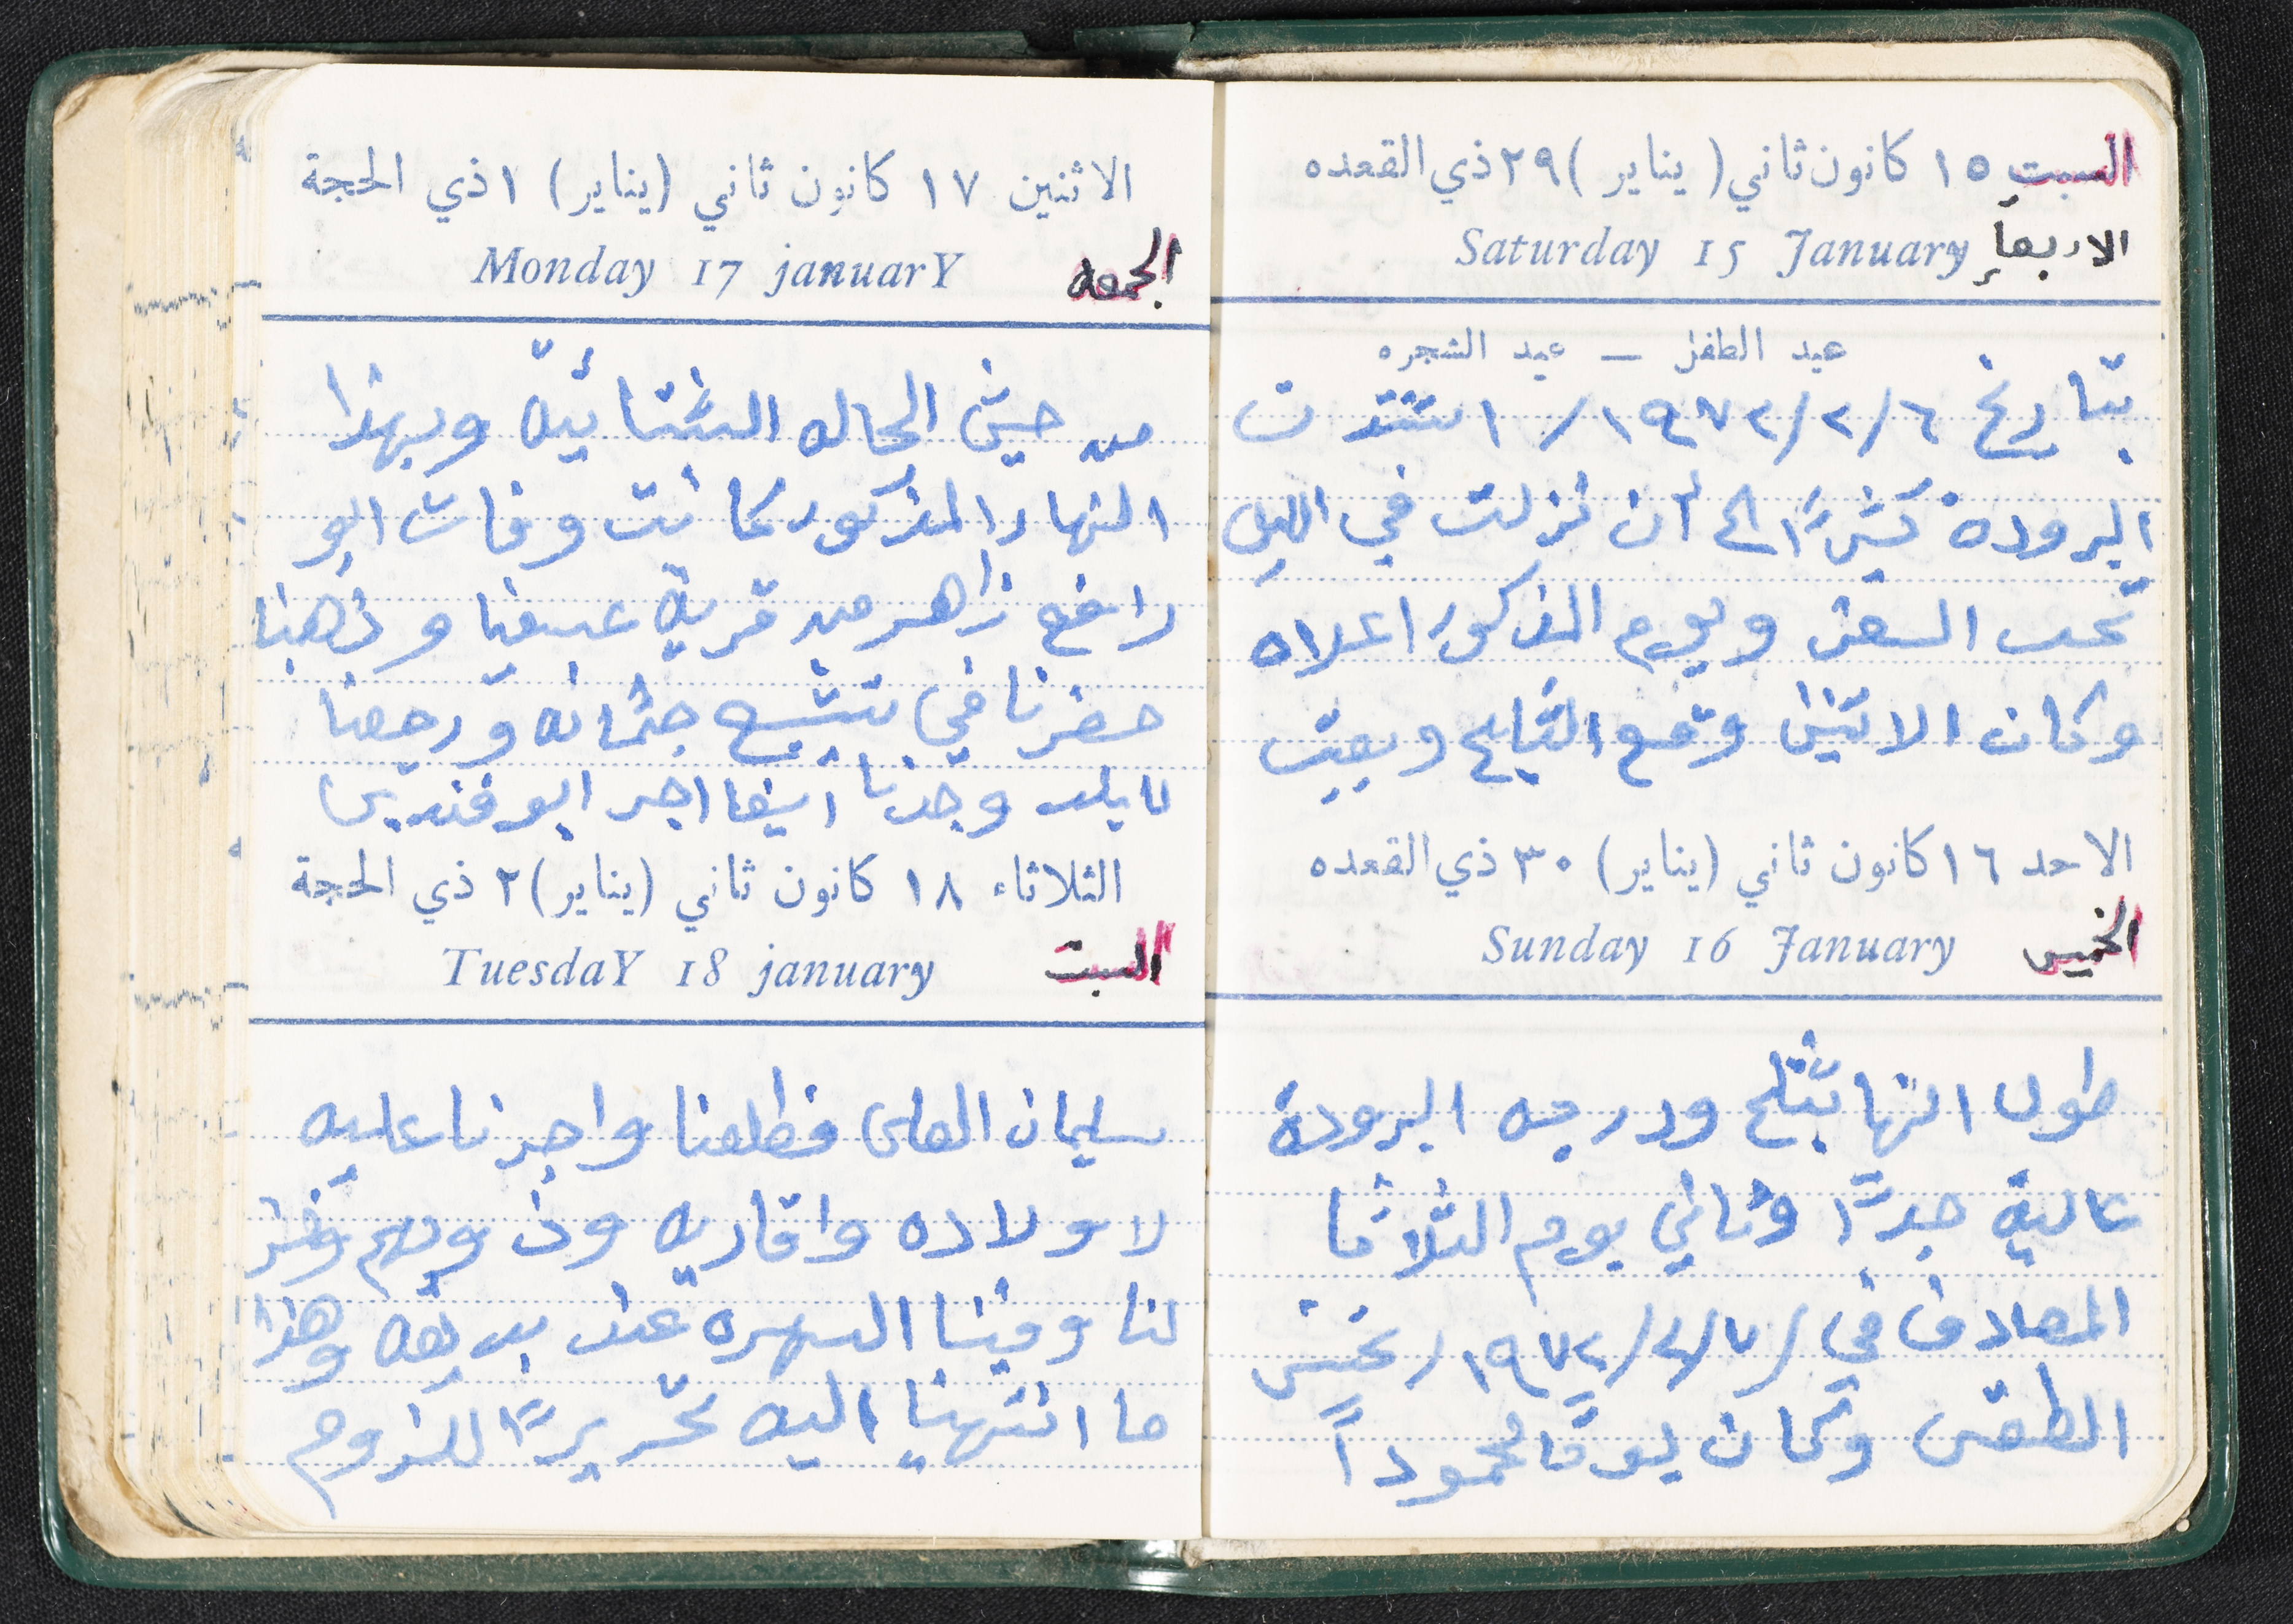 السبت ١٥ كانون ثاني (يناير) ٢٩ ذي القعده
الاربعاء Saturday 15 January
عيد الطفل — عيد الشجره
بتاريخ ٦/٢/١٩٧٢/ اشتدت
البروده كثيرًا الى أن نزلت في الليل
تحت الصفر ويوم المذكور اعلاه
وكان الاثنين وقع الثلج وبقيت
الاحد ١٦ كانون ثاني (يناير) ٣٠ ذي القعده
الخميس Sunday 16 January
طول النها بتثلج ودرجه البرودة
عالية جدًا وثاني يوم الثلاثا
المصادف في /٧/٢/١٩٧٢/ تحسن
الطقس وكان يومًا محموداً
الاثنين ١٧ كانون ثاني (يناير) ١ ذي الحجة
الجمعه Monday 17 januarY
من حيث الحاله الشتائيّه وبهذا
النهار المذكور كانت وفات ابو
رافع زاهر من قرية عسفيا وذهبنا
حضرنا في تشيع جثمانه ورجعنا
لابلد وجدنا ايضا اجر ابو فندي
الثلاثاء ١٨ كانون ثاني (يناير) ٢ ذي الحجة
السبت TuesdaY 18 january
سليمان العلى فطلعنا واجرنا عليه
لاولاده واقاربه وذويهم
لنا وقينا السهره عند بديعه وهذا
ما انتهينا اليه تحريرًا للزوم